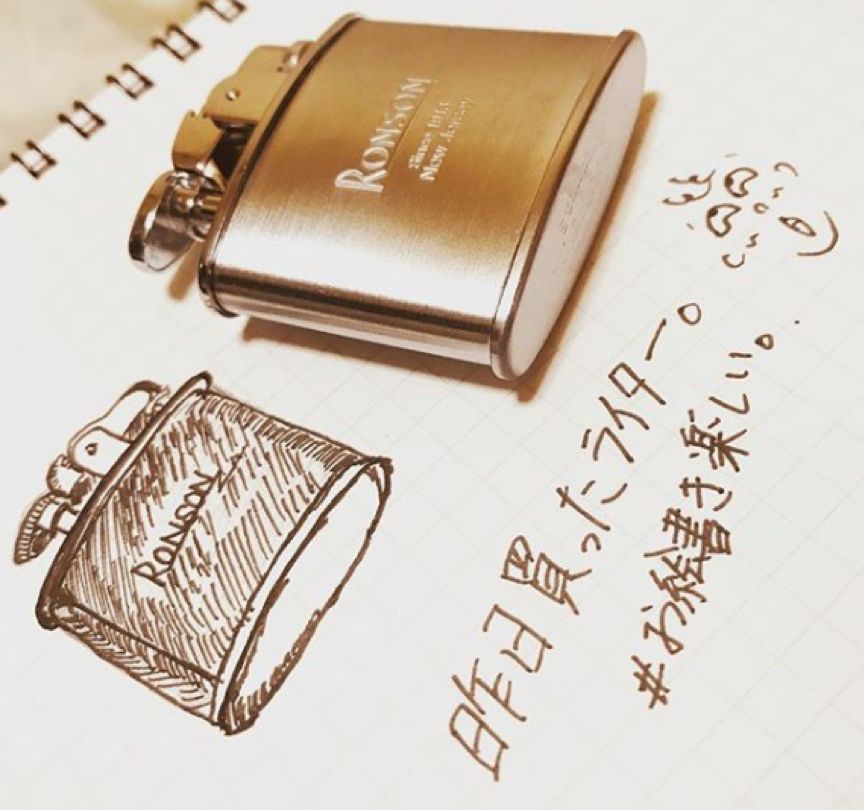 RONSON
Since 1913
New Jersey
RONSON
昨日買ったライター。
#お絵書き楽しい。